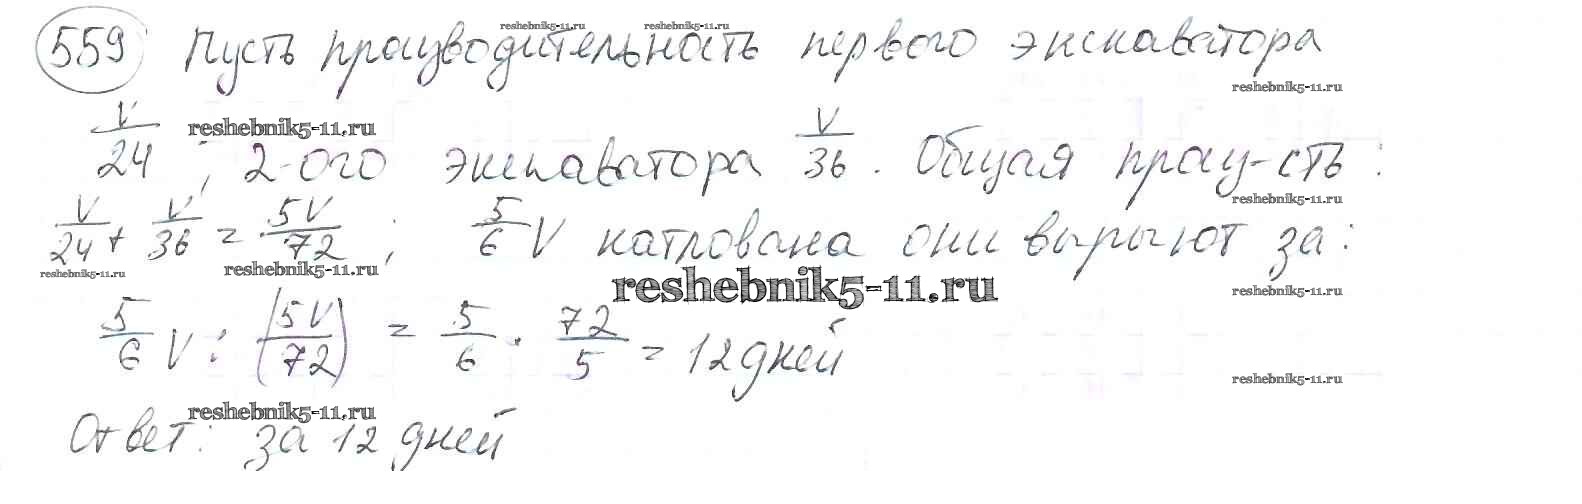 reshebnik5-11.ru reshebnik5-11.ru
559 Пусть производительность первого экскаватора
reshebnik5-11.ru
V/24 ; 2-ого экскаватора V/36 . Общая произ-сть :
reshebnik5-11.ru
reshebnik5-11.ru
V/24 + V/36 = 5V/72 ; 5/6 V котлована они вырыют за :
reshebnik5-11.ru reshebnik5-11.ru reshebnik5-11.ru reshebnik5-11.ru
5/6 V : (5V/72) = 5/6 · 72/5 = 12 дней
reshebnik5-11.ru
reshebnik5-11.ru
Ответ: за 12 дней